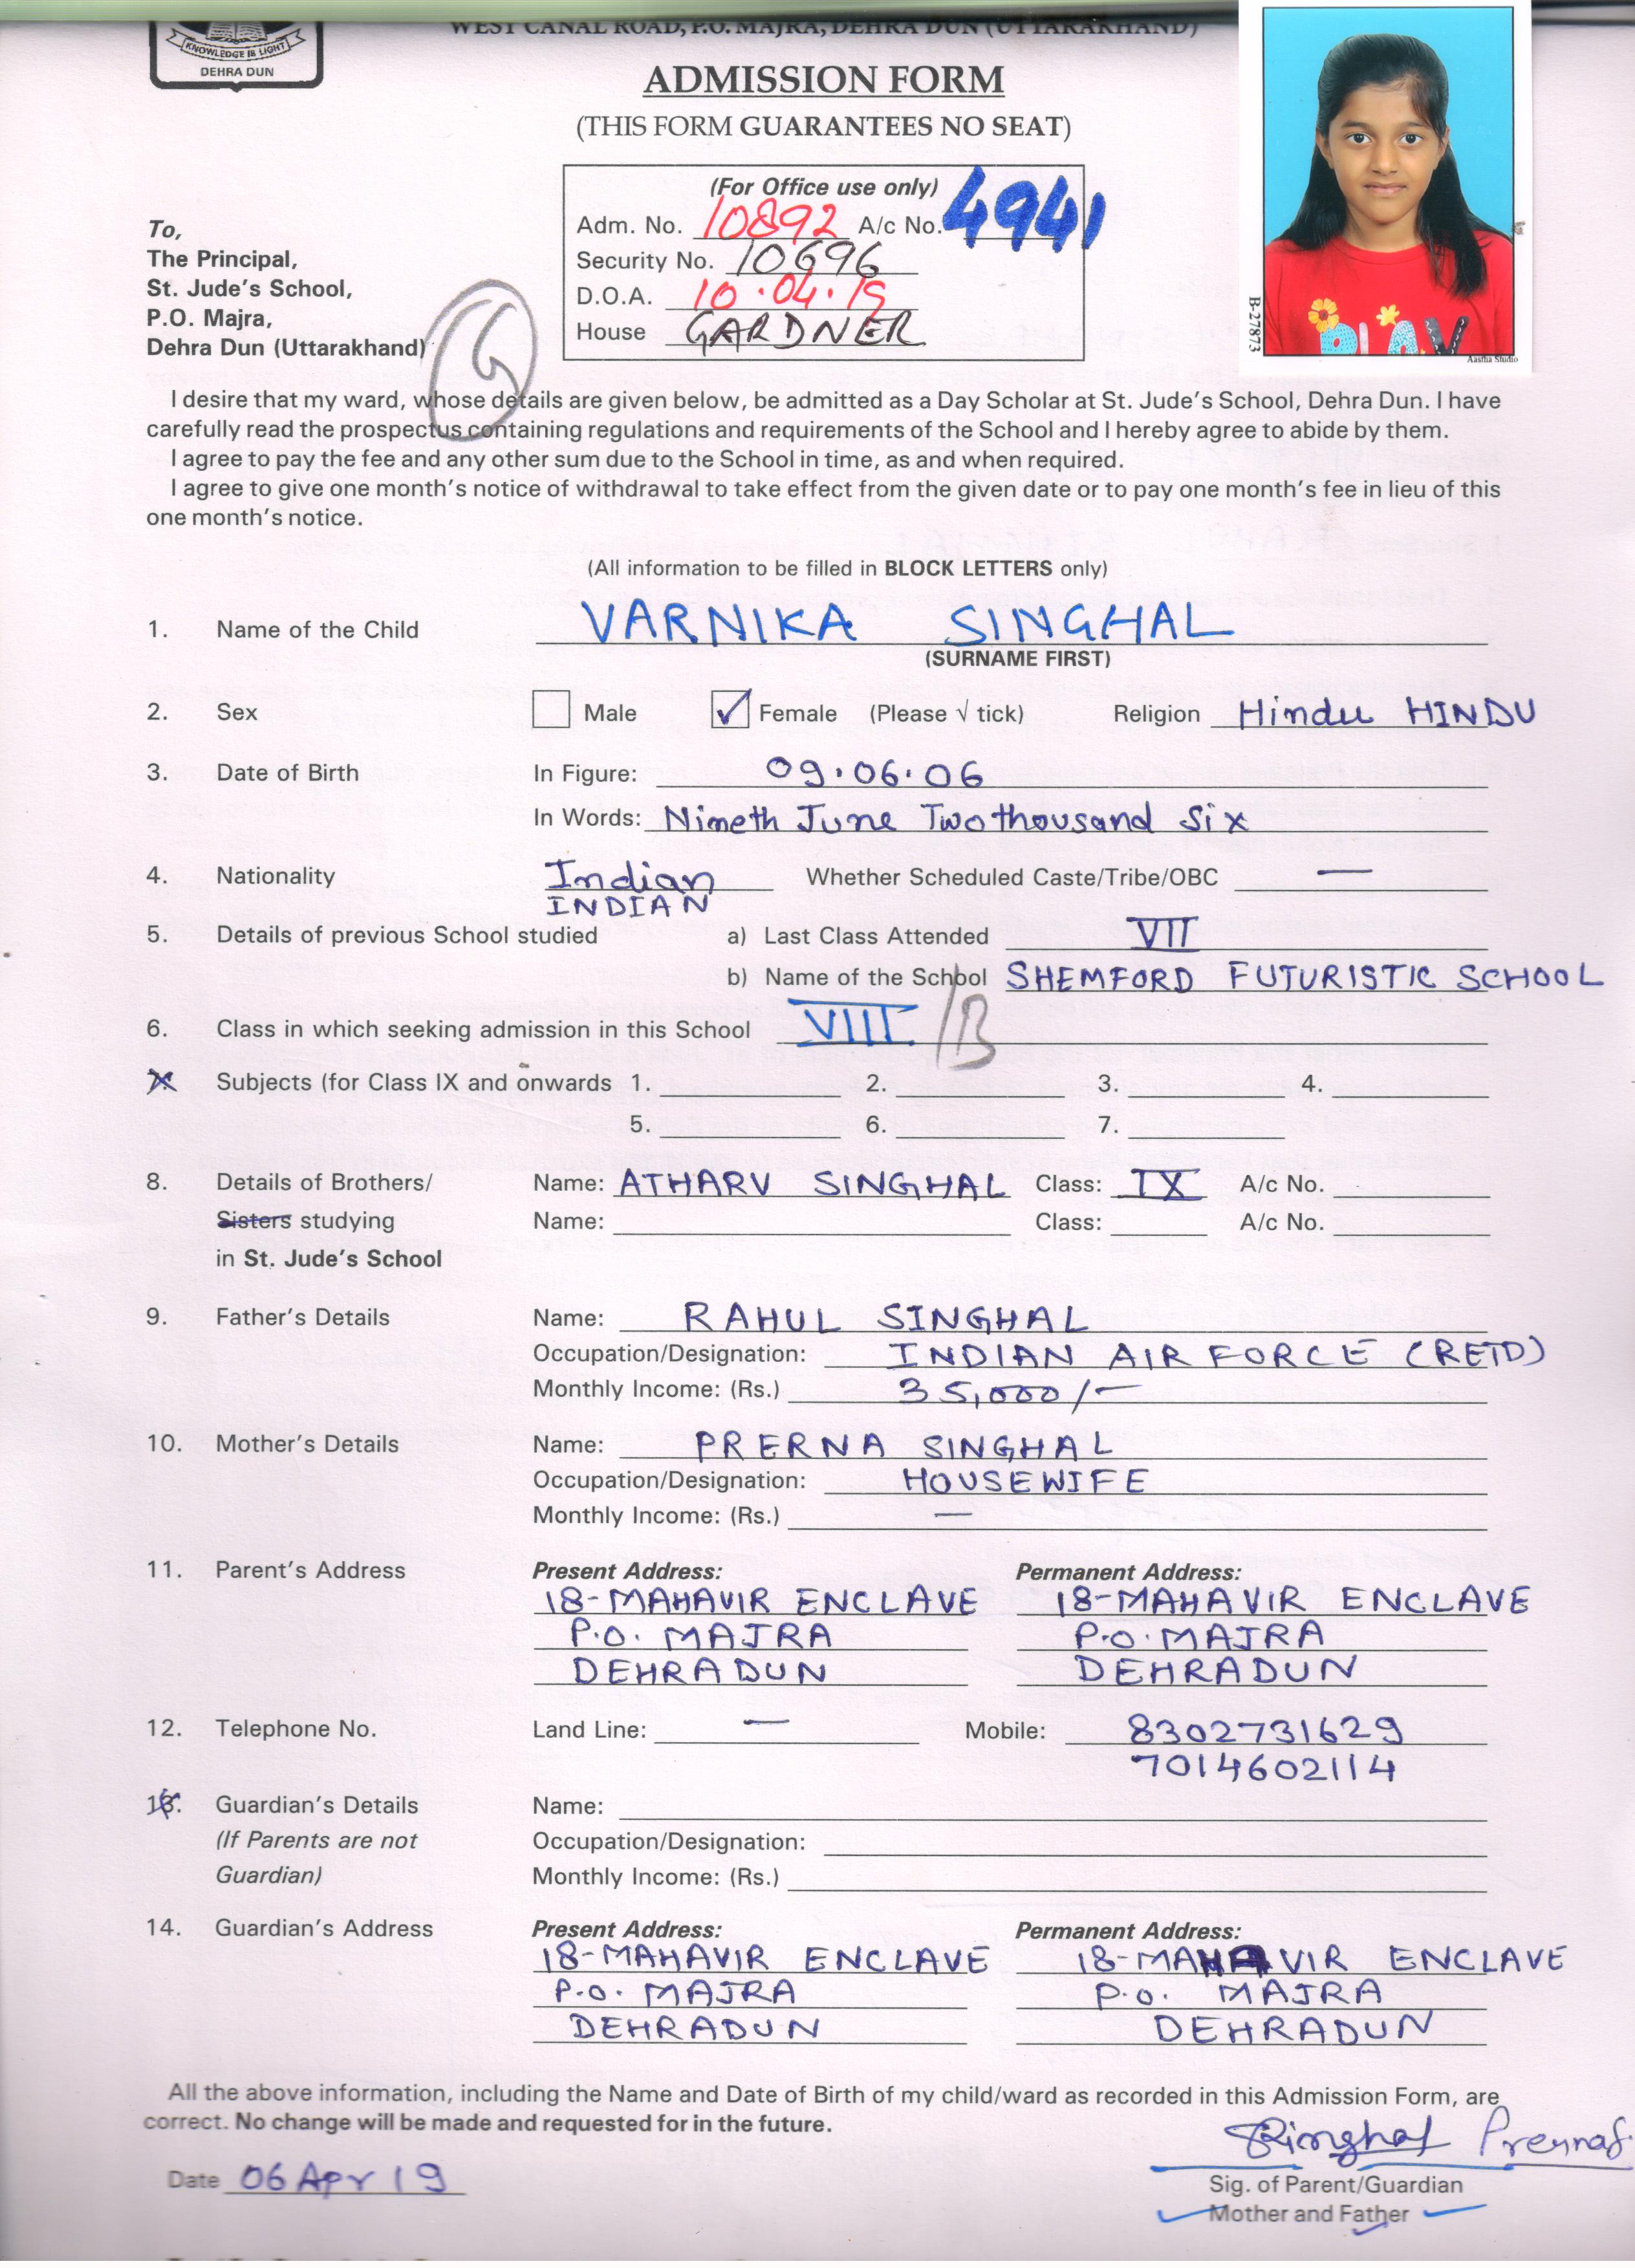 WEST CANAL ROAD, P.O. MAJRA, DEHRA DUN (UTTARAKHAND)
KNOWLEDGE IS LIGHT
DEHRA DUN
ADMISSION FORM
(THIS FORM GUARANTEES NO SEAT)
(For Office use only)
Adm. No. 10892 A/c No. 4941
Security No. 10696
D.O.A. 10.04.19
House GARDNER
To,
The Principal,
St. Jude's School,
P.O. Majra,
Dehra Dun (Uttarakhand)
G
B-27873
PLAY
Aastha Studio
I desire that my ward, whose details are given below, be admitted as a Day Scholar at St. Jude's School, Dehra Dun. I have
carefully read the prospectus containing regulations and requirements of the School and I hereby agree to abide by them.
I agree to pay the fee and any other sum due to the School in time, as and when required.
I agree to give one month's notice of withdrawal to take effect from the given date or to pay one month's fee in lieu of this
one month's notice.
(All information to be filled in BLOCK LETTERS only)
1. Name of the Child VARNIKA SINGHAL
(SURNAME FIRST)
2. Sex Male ✓ Female (Please √ tick) Religion Hindu HINDU
3. Date of Birth In Figure: 09.06.06
In Words: Nineth June Two thousand Six
4. Nationality Indian Whether Scheduled Caste/Tribe/OBC —
INDIAN
5. Details of previous School studied a) Last Class Attended VII
b) Name of the School SHEMFORD FUTURISTIC SCHOOL
6. Class in which seeking admission in this School VIII /B
7. Subjects (for Class IX and onwards 1. 2. 3. 4.
5. 6. 7.
8. Details of Brothers/ Name: ATHARV SINGHAL Class: IX A/c No.
Sisters studying Name: Class: A/c No.
in St. Jude's School
9. Father's Details Name: RAHUL SINGHAL
Occupation/Designation: INDIAN AIR FORCE (RETD)
Monthly Income: (Rs.) 35,000/-
10. Mother's Details Name: PRERNA SINGHAL
Occupation/Designation: HOUSEWIFE
Monthly Income: (Rs.) —
11. Parent's Address Present Address: Permanent Address:
18-MAHAVIR ENCLAVE 18-MAHAVIR ENCLAVE
P.O. MAJRA P.O. MAJRA
DEHRADUN DEHRADUN
12. Telephone No. Land Line: — Mobile: 8302731629
7014602114
13. Guardian's Details Name:
(If Parents are not Occupation/Designation:
Guardian) Monthly Income: (Rs.)
14. Guardian's Address Present Address: Permanent Address:
18-MAHAVIR ENCLAVE 18-MAHAVIR ENCLAVE
P.O. MAJRA P.O. MAJRA
DEHRADUN DEHRADUN
All the above information, including the Name and Date of Birth of my child/ward as recorded in this Admission Form, are
correct. No change will be made and requested for in the future.
RSinghal PrernaS.
Date 06 Apr 19
Sig. of Parent/Guardian
Mother and Father